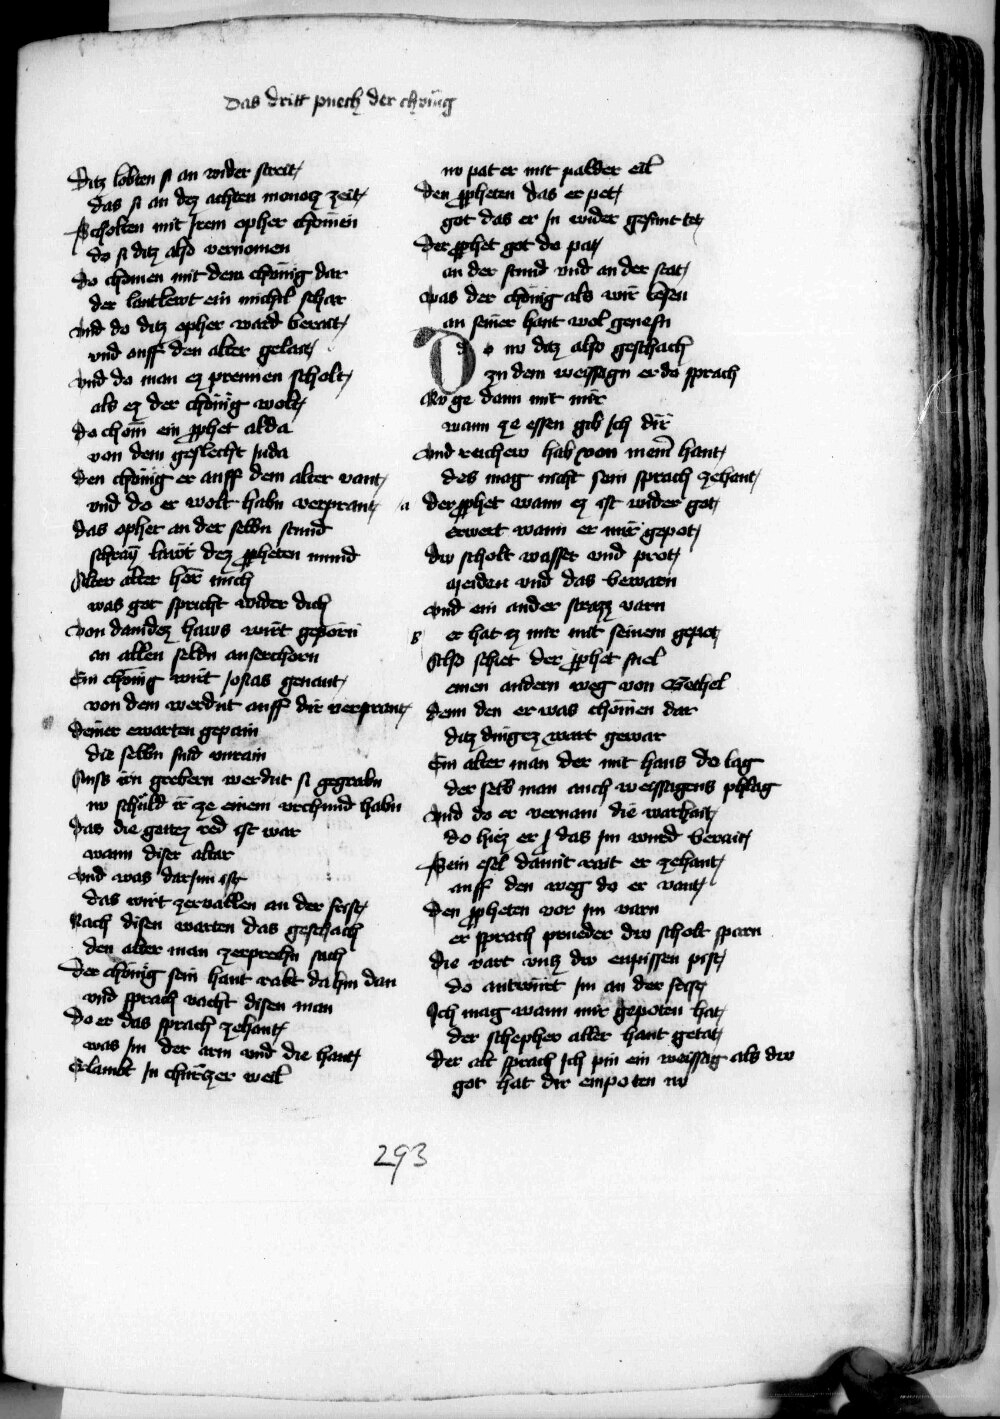 Das dritt puech der chönig
Ditz lobten si an wider streit
das si an dez achten monatz zeit
Scholten mit irem opher chomen
do si ditz also vernomen
Do chomen mit dem chönig dar
der lantlewt ein michel schar
Vnd do ditz opher ward berait
vnd auff den alter gelait
Vnd do man ez prennen scholt
als ez der chönig wolt
Do chom ein pphet alda
von dem geslecht juda
Den chönig er auff dem alter vant
vnd do er wolt habn verprant
Das opher an der selbn stund
schray lawt dez ppheten mund
Alter alter hör mich
was got spricht wider dich
Von dauidez haws wirt geporn
an allen seldn auserchorn
Ein chönig wirt josias genant
von dem werdnt auff dir verprant
Deiner ewarten gepain
die selbn sind vnrain
Auss irn grebern werdnt si gegrabn
nv schuld ir ze einem vrchund habn
Das die gottez red ist war
wann diser altar
Vnd was dar jnn ist
das wirt zervallen an der frist
Nach disen warten das geschach
den alter man zerprechn sach
Der chönig sein hant rakt da hin dan
vnd sprach vacht disen man
Do er das sprach zehant
was jm der arm vnd die hant
Erlambt jn churtzer weil
nv pat er mit palder eil
Den ppheten das er pet
got das er jn wider gesunt tet
Der pphet got do pat
an der stund vnd an der stat
Was der chönig als wir lesen
an seiner hant wol genesn
Do nv daz also geschach
zu dem weissagn er do sprach
Nv ge dann mit mir
wann ze essen gib ich dir
Vnd reichew hab von mein hant
des mag nicht sein sprach zehant
a der pphet wann ez ist wider got
erwert wann er mir gepot
Dw scholt wasser vnd prot
meiden vnd das bewarn
Vnd ein ander strazz varn
b er hat ez mir mit seinem gepot
Also schiet der pphet snel
einen andern weg von Bethel
Denn den er was chomen dar
ditz dingez wart gewar
Ein alter man der mit haus do lag
der selb man auch weissagens phlag
Vnd do er vernam die warhait
do hiez er das jm wurd berait
Sein esel damit rait er zehant
auff den weg do er vant
Den ppheten vor jm varn
er sprach prueder dw scholt sparn
Die vart vntz dw enpissen pist
do antwurt jm an der frist
Ich mag wann mir gepoten hat
der schepher aller hant getat
Der alt sprach ich pin ein weissag als dw
got hat dir enpoten nv
293